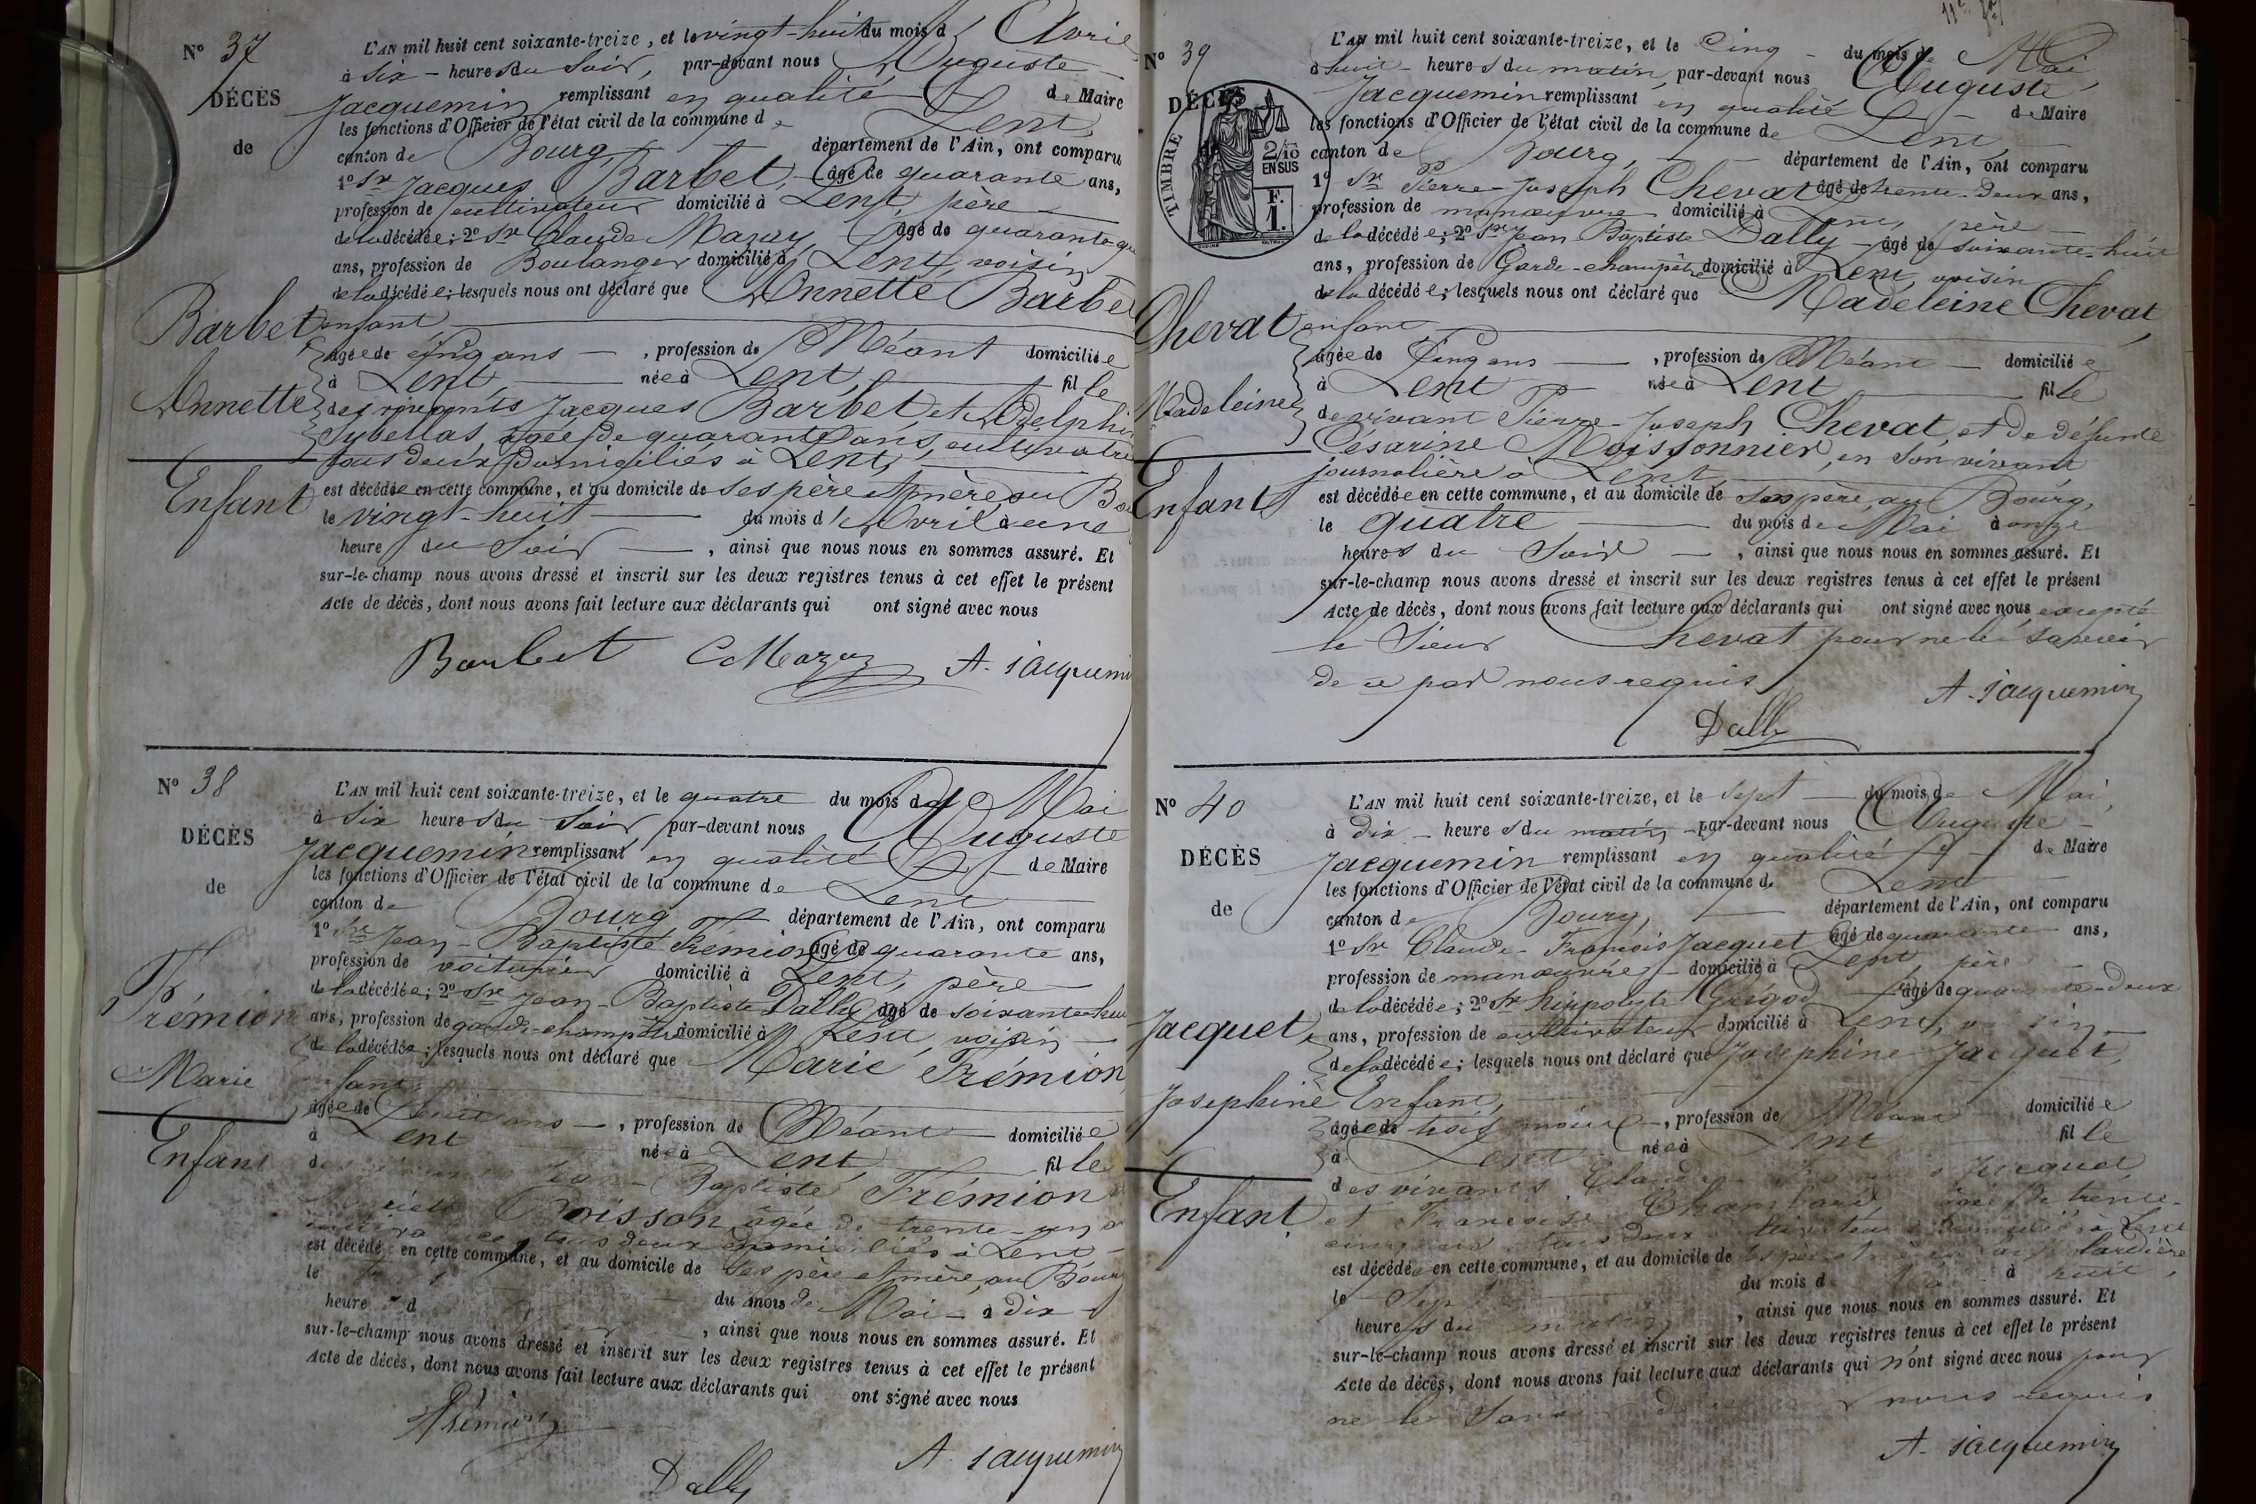 N° 37
DÉCÈS
de
Barbet
Annette
Enfant
L'AN mil huit cent soixante-treize, et le vingt-huit du mois d'Avril
à six heures du soir, par-devant nous Auguste
Jacquemin remplissant en qualité de Maire
les fonctions d'Officier de l'état civil de la commune de Lent,
canton de Bourg, département de l'Ain, ont comparu
1° Sr Jacques Barbet, âgé de quarante ans,
profession de cultivateur domicilié à Lent, père
de la décédée; 2° Sr Claude Mazuy âgé de quarante
ans, profession de Boulanger domicilié à Lent, voisin
de la décédée; lesquels nous ont déclaré que Annette Barbet
enfant
âgée de cinq ans, profession de Néant domiciliée
à Lent, née à Lent, fille
des vivants Jacques Barbet, et Adelphine
Sybellas, âgée de quarante ans, cultivatrice
tous deux domiciliés à Lent,
est décédée en cette commune, et au domicile de ses père et mère, au Bourg
le vingt-huit du mois d'Avril à une
heure du soir, ainsi que nous nous en sommes assuré. Et
sur-le-champ nous avons dressé et inscrit sur les deux registres tenus à cet effet le présent
Acte de décès, dont nous avons fait lecture aux déclarants qui ont signé avec nous
Barbet C Mazuy A. Jacquemin
N° 38
DÉCÈS
de
Frémion
Marie
Enfant
L'AN mil huit cent soixante-treize, et le quatre du mois de Mai
à six heures du soir, par-devant nous Auguste
Jacquemin remplissant en qualité de Maire
les fonctions d'Officier de l'état civil de la commune de Lent
canton de Bourg, département de l'Ain, ont comparu
1° Sr Jean-Baptiste Frémion âgé de quarante ans,
profession de voiturier domicilié à Lent, père
de la décédée; 2° Sr Jean-Baptiste Dally âgé de soixante-huit
ans, profession de garde-champêtre domicilié à Lent, voisin
de la décédée; lesquels nous ont déclaré que Marie Frémion
enfant,
âgée de huit ans, profession de Néant domiciliée
à Lent née à Lent, fille
Jean-Baptiste Frémion
Boisson, âgée de trente-un
tous deux domiciliés à Lent
est décédé en cette commune, et au domicile de ses père et mère, au Bourg
le du mois de Mai à dix
heure d , ainsi que nous nous en sommes assuré. Et
sur-le-champ nous avons dressé et inscrit sur les deux registres tenus à cet effet le présent
Acte de décès, dont nous avons fait lecture aux déclarants qui ont signé avec nous
Frémion
Dally A. Jacquemin
N° 39
DÉCÈS
TIMBRE
2/10
EN SUS
F.
1.
Chevat
Madeleine
Enfant
L'AN mil huit cent soixante-treize, et le Cinq du mois de Mai
à huit heures du matin, par-devant nous Auguste
Jacquemin remplissant en qualité de Maire
les fonctions d'Officier de l'état civil de la commune de Lent,
canton de Bourg, département de l'Ain, ont comparu
1° Sr Pierre-Joseph Chevat âgé de trente-deux ans,
profession de manœuvre domicilié à Lent, père
de la décédée; 2° Sr Jean Baptiste Dally âgé de soixante-huit
ans, profession de Garde-champêtre domicilié à Lent, voisin
de la décédée; lesquels nous ont déclaré que Madeleine Chevat,
enfant
âgée de Cinq ans, profession de Néant domiciliée
à Lent née à Lent fille
de vivant Pierre-Joseph Chevat, et de défunte
Césarine Moissonnier, en son vivant
journalière à Lent,
est décédée en cette commune, et au domicile de son père, au Bourg,
le quatre du mois de Mai à onze
heures du soir, ainsi que nous nous en sommes assuré. Et
sur-le-champ nous avons dressé et inscrit sur les deux registres tenus à cet effet le présent
Acte de décès, dont nous avons fait lecture aux déclarants qui ont signé avec nous excepté
le Sieur Chevat pour ne le savoir
de ce par nous requis
A. Jacquemin
Dally
N° 40
DÉCÈS
de
Jacquet,
Joséphine
Enfant
L'AN mil huit cent soixante-treize, et le sept du mois de Mai,
à dix heures du matin par-devant nous Auguste
Jacquemin remplissant en qualité de Maire
les fonctions d'Officier de l'état civil de la commune de Lent
canton de Bourg, département de l'Ain, ont comparu
1° Sr Claude-François Jacquet âgé de quarante ans,
profession de manœuvre domicilié à Lent, père
de la décédée; 2° Sr hippolyte Grégod âgé de quarante-deux
ans, profession de cultivateur domicilié à Lent, voisin
de la décédée; lesquels nous ont déclaré que Joséphine Jacquet,
Enfant,
âgée de trois mois, profession de Néant domiciliée
à Lent née à Lent fille
des vivants Claude-François Jacquet
et Françoise Chambard, âgée de trente-
cinq ans, tous deux domiciliés à Lent
est décédée en cette commune, et au domicile de ses père et mère
le sept du mois de Mai à huit,
heures du matin, ainsi que nous nous en sommes assuré. Et
sur-le-champ nous avons dressé et inscrit sur les deux registres tenus à cet effet le présent
Acte de décès, dont nous avons fait lecture aux déclarants qui n'ont signé avec nous pour
ne le savoir de ce par nous requis
A. Jacquemin